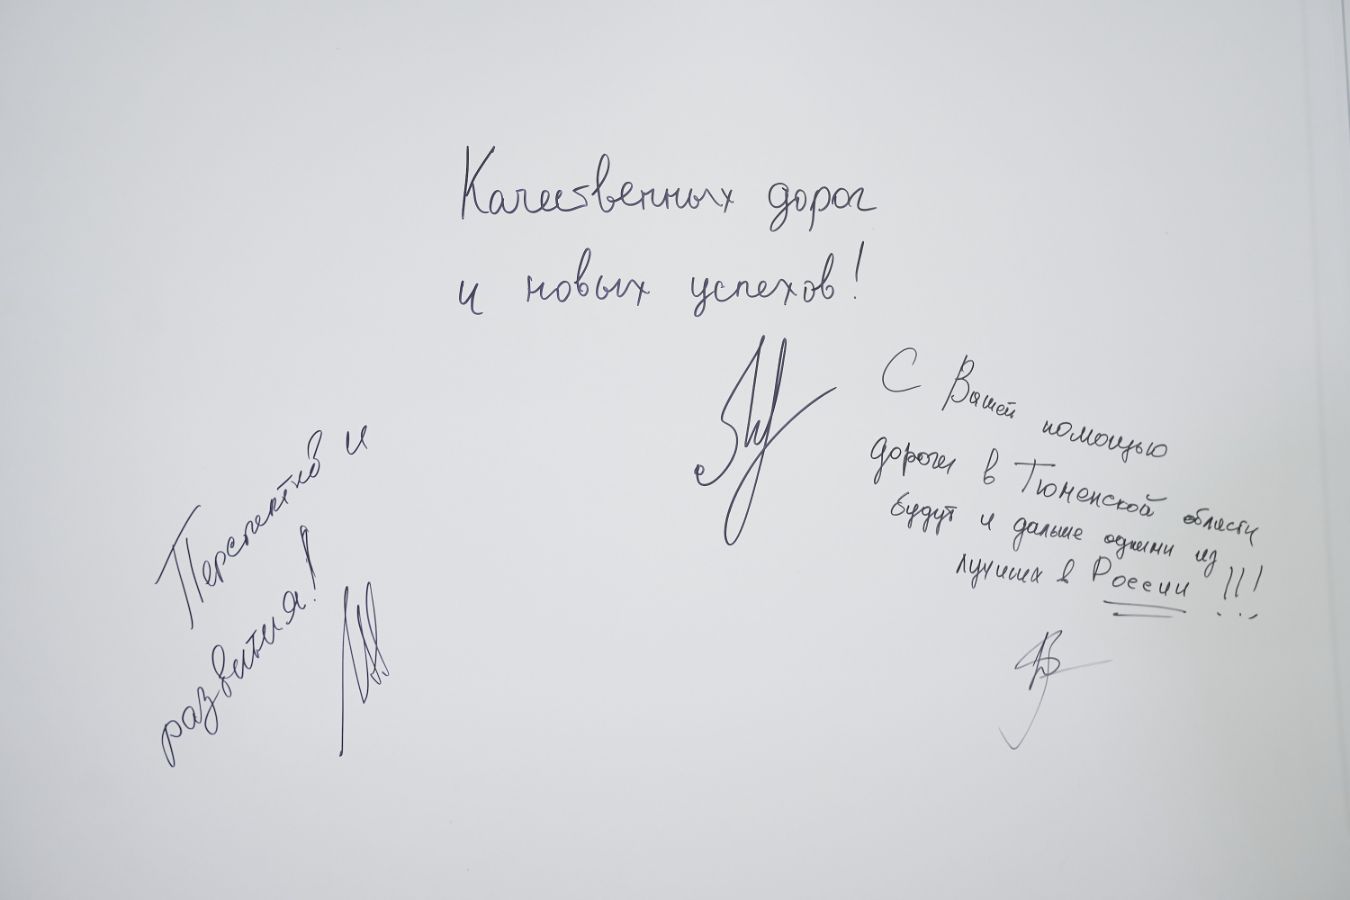 Качественных дорог
и новых успехов!
С Вашей помощью
дороги в Тюменской области
будут и дальше одними из
лучших в России !!!
Перспектив и
развития!